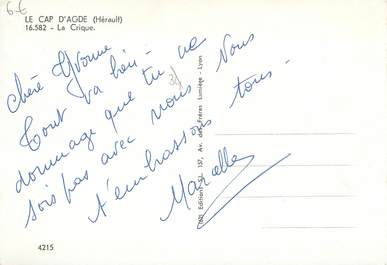 6-6
LE CAP D'AGDE (Hérault)
16.582 - La Crique.
Chère Yvonne
Tout va bien -
dommage que tu ne
sois pas avec nous. Nous
t'embrassons tous -
Marcelle
4215
Editions S.L. 157, Av. des Frères Lumière - Lyon